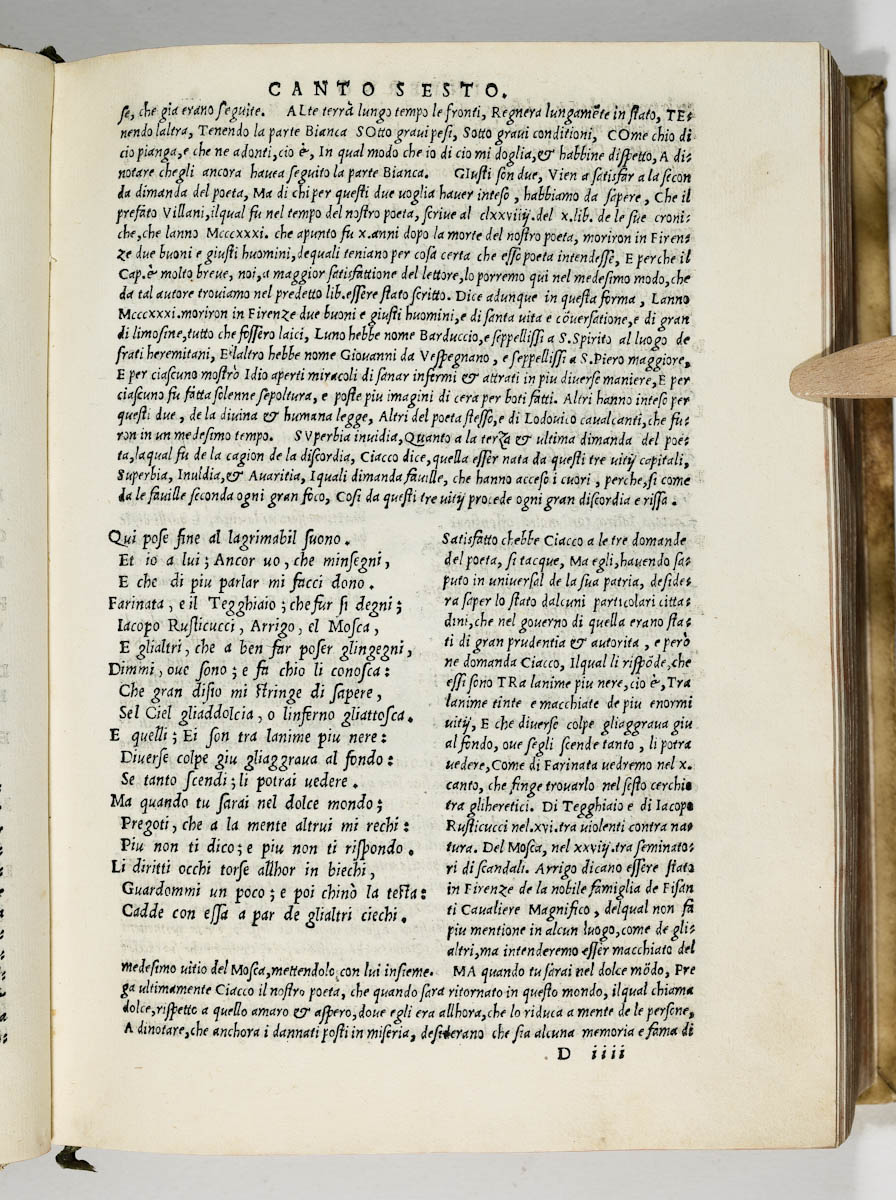 CANTO SESTO.
se, che gia erano seguite. ALte terrà lungo tempo le fronti, Regnera lungamẽte in stato, TE-
nendo laltra, Tenendo la parte Bianca SOtto graui pesi, Sotto graui conditioni, COme chio di
cio pianga, e che ne adonti, cio è, In qual modo che io di cio mi doglia, & habbine dispetto, A di-
notare chegli ancora hauea seguito la parte Bianca. GIusti son due, Vien a satisfar a la secon
da dimanda del poeta, Ma di chi per questi due uoglia hauer inteso, habbiamo da sapere, Che il
prefato Villani, ilqual fu nel tempo del nostro poeta, scriue al clxxviiij. del x. lib. de le sue croni-
che, che lanno Mcccxxxi. che apunto fu x. anni dopo la morte del nostro poeta, moriron in Firen-
ze due buoni e giusti huomini, dequali teniano per cosa certa che esso poeta intendesse, E perche il
Cap. è molto breue, noi, a maggior satisfattione del lettore, lo porremo qui nel medesimo modo, che
da tal autore trouiamo nel predetto lib. essere stato scritto. Dice adunque in questa forma, Lanno
Mcccxxxi. moriron in Firenze due buoni e giusti huomini, e di santa uita e cõuersatione, e di gran
di limosine, tutto che fossero laici, Luno hebbe nome Barduccio, e seppellissi a S. Spirito al luogo de
frati heremitani, E laltro hebbe nome Giouanni da Vespegnano, e seppellissi a S. Piero maggiore,
E per ciascuno mostrò Idio aperti miracoli di sanar infermi & attrati in piu diuerse maniere, E per
ciascuno fu fatta solenne sepoltura, e poste piu imagini di cera per boti fatti. Altri hanno inteso per
questi due, de la diuina & humana legge, Altri del poeta stesso, e di Lodouico caualcanti, che fu-
ron in un medesimo tempo. SVperbia inuidia, Quanto a la terza & ultima dimanda del poe-
ta, laqual fu de la cagion de la discordia, Ciacco dice, quella esser nata da questi tre uitij capitali,
Superbia, Inuidia, & Auaritia, I quali dimanda fauille, che hanno acceso i cuori, perche, si come
da le fauille seconda ogni gran foco, Cosi da questi tre uitij procede ogni gran discordia e rissa.
Qui pose fine al lagrimabil suono.
Et io a lui; Ancor uo, che minsegni,
E che di piu parlar mi facci dono.
Farinata, e il Tegghiaio; che fur si degni;
Iacopo Rusticucci, Arrigo, el Mosca,
E glialtri, che a ben far poser glingegni,
Dimmi, oue sono; e fa chio li conosca:
Che gran disio mi stringe di sapere,
Sel Ciel gliaddolcia, o linferno gliattosca.
E quelli; Ei son tra lanime piu nere:
Diuerse colpe giu gliaggraua al fondo:
Se tanto scendi; li potrai uedere.
Ma quando tu sarai nel dolce mondo;
Pregoti, che a la mente altrui mi rechi:
Piu non ti dico; e piu non ti rispondo.
Li diritti occhi torse allhor in biechi,
Guardommi un poco; e poi chinò la testa:
Cadde con essa a par de glialtri ciechi.
Satisfatto chebbe Ciacco a le tre domande
del poeta, si tacque, Ma egli, hauendo sa-
puto in uniuersal de la sua patria, deside-
ra saper lo stato dalcuni particolari citta-
dini, che nel gouerno di quella erano sta-
ti di gran prudentia & autorita, e però
ne domanda Ciacco, Ilqual li rispõde, che
essi sono TRa lanime piu nere, cio è, Tra
lanime tinte e macchiate de piu enormi
uitij, E che diuerse colpe gliaggraua giu
al fondo, oue segli scende tanto, li potra
uedere, Come di Farinata uedremo nel x.
canto, che finge trouarlo nel sesto cerchio
tra gliheretici. Di Tegghiaio e di Iacopo
Rusticucci nel. xvi. tra uiolenti contra na-
tura. Del Mosca, nel xxviij. tra seminato-
ri di scandali. Arrigo dicano essere stato
in Firenze de la nobile famiglia de Fisan
ti Caualiere Magnifico, delqual non fa
piu mentione in alcun luogo, come de gli-
altri, ma intenderemo esser macchiato del
medesimo uitio del Mosca, mettendolo con lui insieme. MA quando tu sarai nel dolce mõdo, Pre
ga ultimamente Ciacco il nostro poeta, che quando sara ritornato in questo mondo, ilqual chiama
dolce, rispetto a quello amaro & aspero, doue egli era allhora, che lo riduca a mente de le persone,
A dinotare, che anchora i dannati posti in miseria, desiderano che sia alcuna memoria e fama di
D iiii